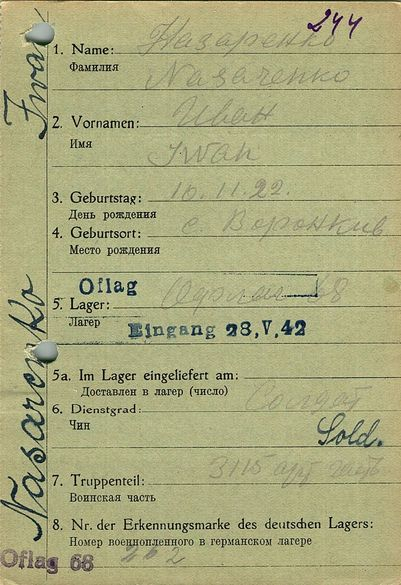 244
1. Name: Назаренко
Фамилия
Nasarenko
2. Vornamen: Иван
Имя
Iwan
3. Geburtstag: 16.11.22.
День рождения
4. Geburtsort: с Воронкив
Место рождения
Oflag
5. Lager: Офлаг 68
Лагер
Eingang 28.V.42
5a. Im Lager eingeliefert am:
Доставлен в лагер (число)
6. Dienstgrad: Солдат
Чин
Sold.
7. Truppenteil: 3115
Воинская часть
8. Nr. der Erkennungsmarke des deutschen Lagers:
Номер военнопленного в германском лагере
262
Oflag 68
Nasarenko Iwan